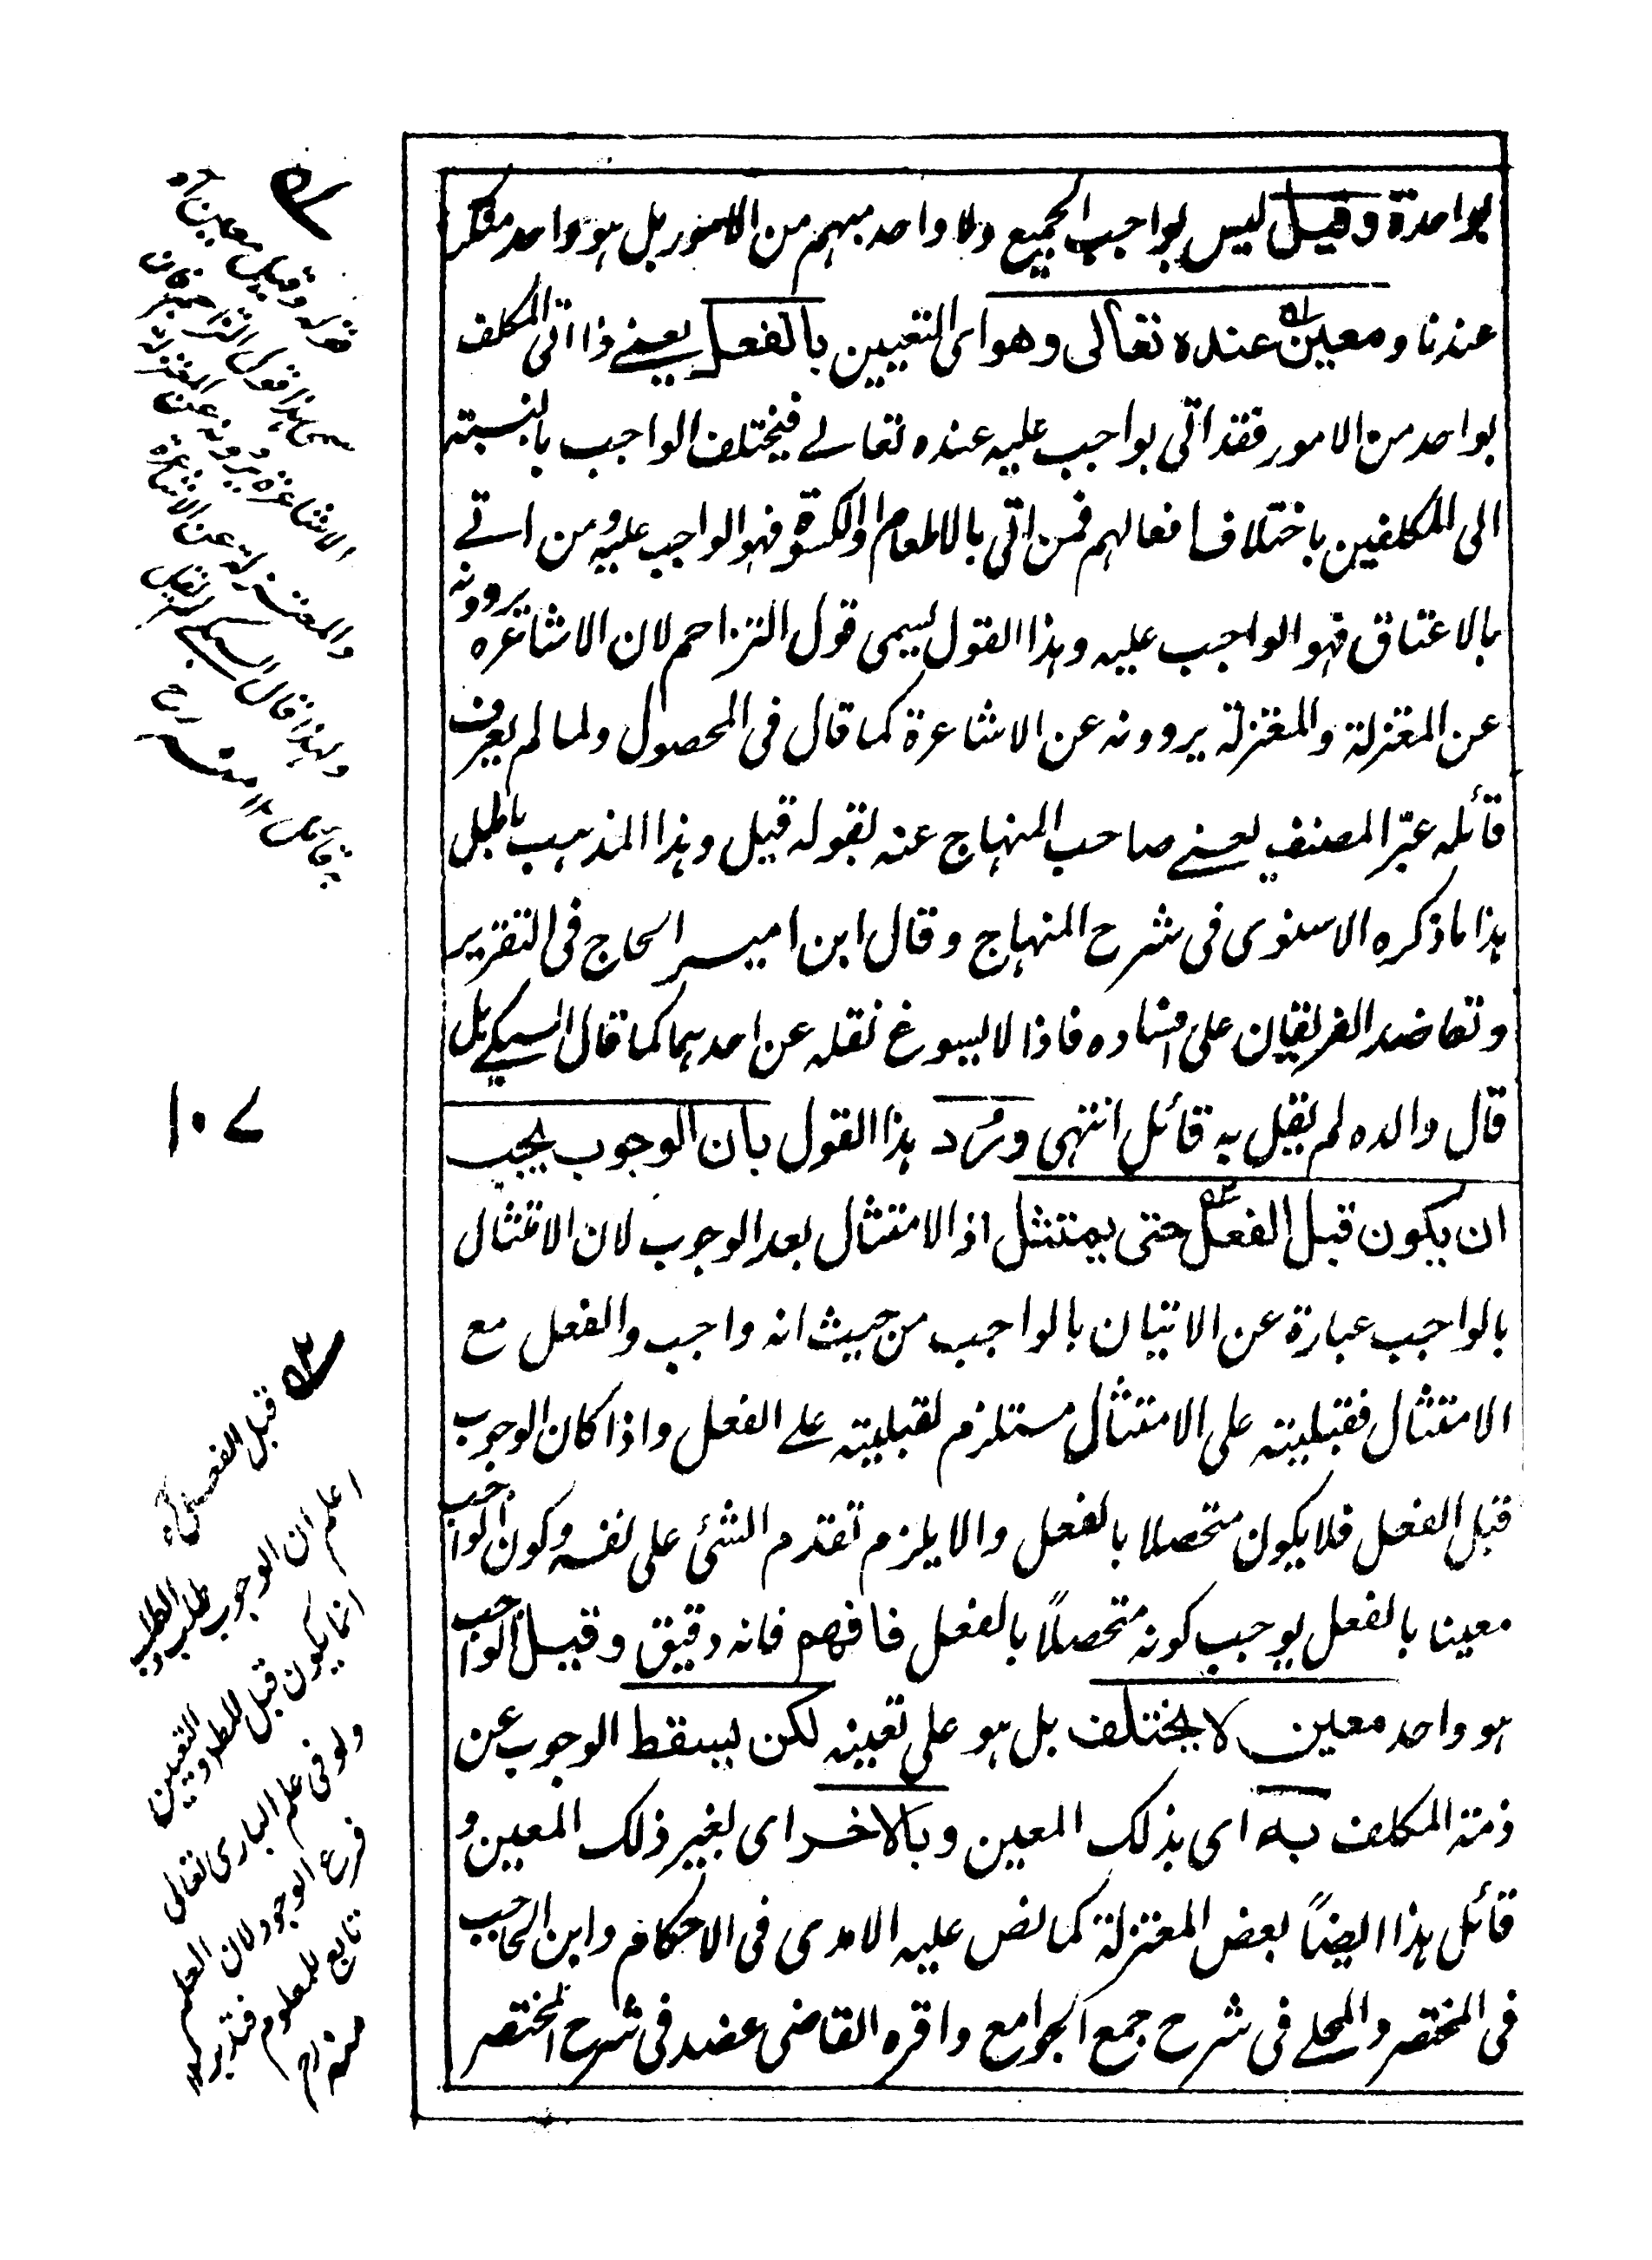 بواحدة وقيل ليس بواجب الجميع ولا واحد مبهم من الامور بل هو واحد منكر
عندنا ومعين عنده تعالى وهو اى التعيين بالفعل يعنے اذا اتى المكلف
بواحد من الامور فقد اتى بواجب عليه عنده تعالے فيختلف الواجب بالنسبته
الى المكلفين باختلاف افعالهم فمن اتى بالاطعام او الكسوة فهو الواجب عليه ومن اتے
بالاعتاق فهو الواجب عليه وهذا القول يسمى قول التراجم لان الاشاعره يروونه
عن المعتزلة والمعتزلة يروونه عن الاشاعرة كما قال فى المحصول ولما لم يعرف
قائله عبّر المصنف يعنے صاحب المنهاج عنه بقوله قيل وهذا المذهب باطل
هذا ما ذكره الاسنوى فى شرح المنهاج وقال ابن امير الحاج فى التقرير
وتعاضد الفريقان على افساده فاذا لا يسوغ نقله عن احدهما كما قال السبكے بل
قال والده لم يقل به قائل انتهى ورُد هذا القول بان الوجوب يجب
ان يكون قبل الفعل حتى يمتثل اذ الامتثال بعد الوجوب لان الامتثال
بالواجب عبارة عن الاتيان بالواجب من حيث انه واجب والفعل مع
الامتثال فقبليته على الامتثال مستلزم لقبليته علے الفعل واذا كان الوجوب
قبل الفعل فلا يكون متحصلا بالفعل والا يلزم تقدم الشئ على نفسه وكون الواجب
معينا بالفعل يوجب كونه متحصلاً بالفعل فافهم فانه دقيق وقيل الواجب
هو واحد معين لا يختلف بل هو على تعينه لكن يسقط الوجوب عن
ذمة المكلف به اى بذلك المعين وبالاخر اى بغير ذلك المعين و
قائل هذا ايضاً بعض المعتزلة كما نص عليه الامدى فى الاحكام وابن الحاجب
فى المختصر والمحلے فى شرح جمع الجوامع واقره القاضى عضد فى شرح المختصر
قوله وقيل معين اه
يسمى هذا قول التراجم فان
الاشاعرة يروونه عن المعتزلة
والمعتزلة عن الاشاعرة
ولهذا قال السبكے لم يقل
به قائل ١٢ منه رح
١٠٧
قبل الفعل
اعلم ان الوجوب طلب والطلب
انما يكون قبل المطلوب والتعيين
ولو فى علم البارى تعالى
فرع الوجود لان العلم
تابع للمعلوم فتدبر ١٢
منه رح